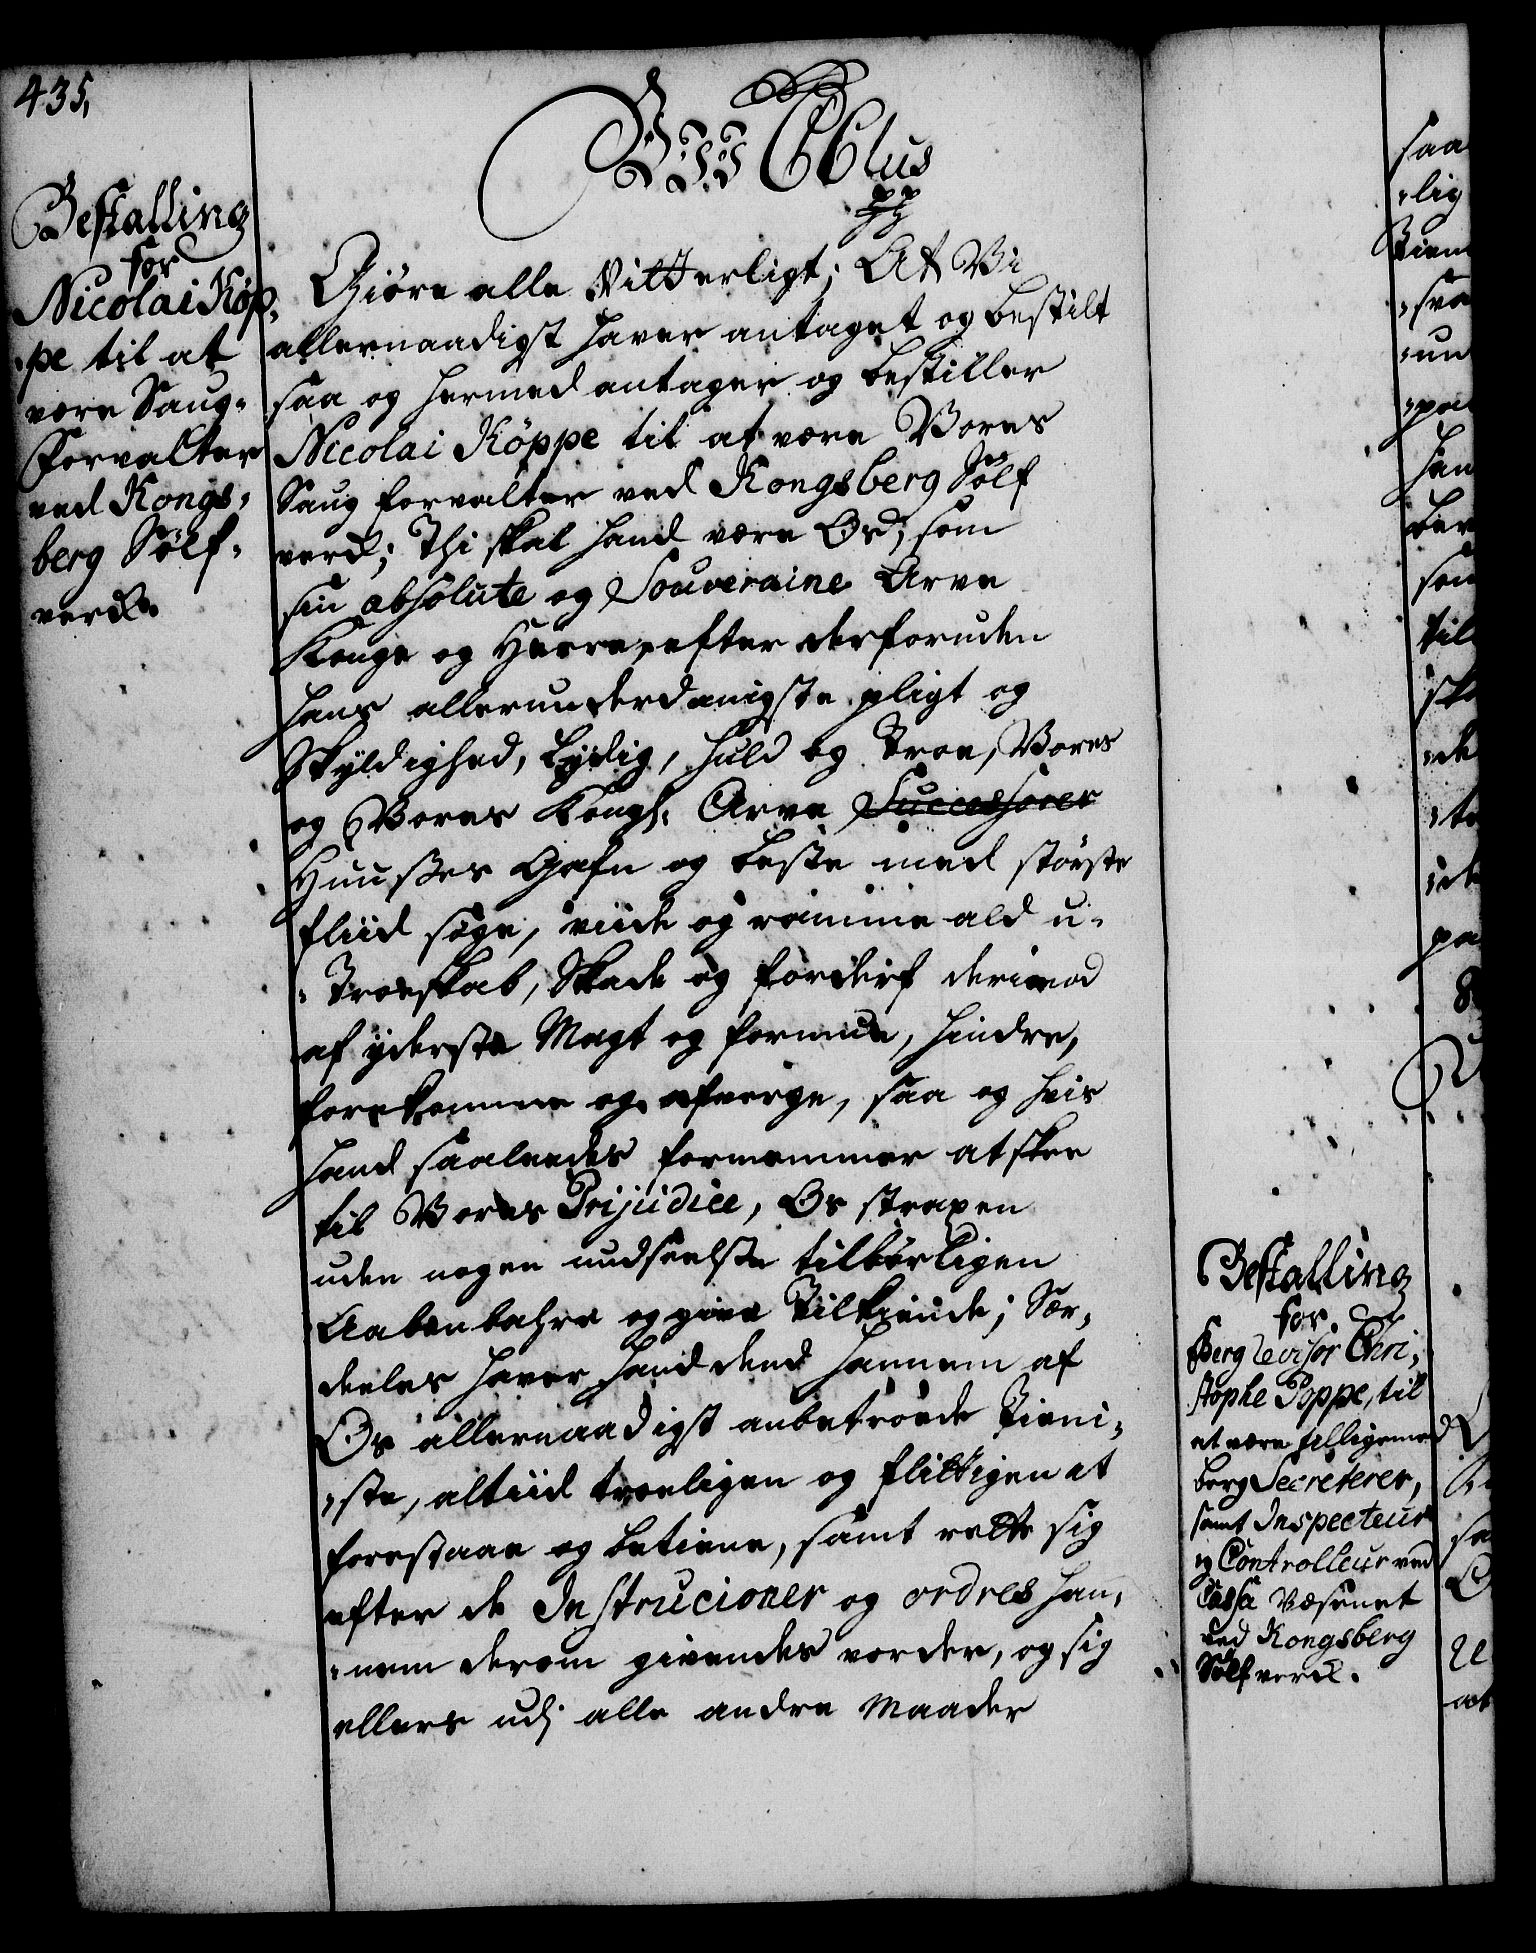 435,
Bestalling
for
Nicolai Köp,
,pe til at
være Saug-
Forvalter
ved Kongs,
berg Sölf,
verck.
CVI Cblus
pp
Giöre alle Vitterligt; At Vi
allernaadigst haver antaget og bestilt
saa og hermed antager og bestiller
Nicolai Köppe til at være Vores
Saug forvalter ved Kongsberg Sölf
verck; Thi skal hand være Os, som
sin absolute og Souveraine Arve
Konge og Herre, efter derforuden
hans allerunderdanigste pligt og
Skyldighed, Lydig, huld og Troe, Vores
og Vores Kongl. Arve Successorer
Huuses Gafn og beste med störste
fliid söge, viide og ramme ald u-
,Troeskab, Skade og forderf derimod
af yderste Magt og formue, hindre,
forekomme og afverge, saa og hvis
hand saaleedes fornemmer at skee
til Vores Prijudice, Os straxen
uden nogen undseelse tilbörligen
Aabenbahre og give Tilkiende; Sær,
deeles haver hand dend hannem af
Os allernaadigst anbetroede Tieni,
,ste, altiid troeligen og flittigen at
forestaae og betiene, samt rette sig
efter de Instrucioner og ordres han,
,nem derom givendes vorder, og sig
ellers udj alle andre Maader
Bestalling
for
Berg revisor Chri,
stophe Poppe, til
at være tilligemed
berg Secreterer,
samt Inspecteur
og Controlleur ved
Cassa Væsenet
ved Kongsberg
Sölf verck.
saa
,lig
Tien
,sva
,un
,pa
han
ber
som
til
ska
,de
pa